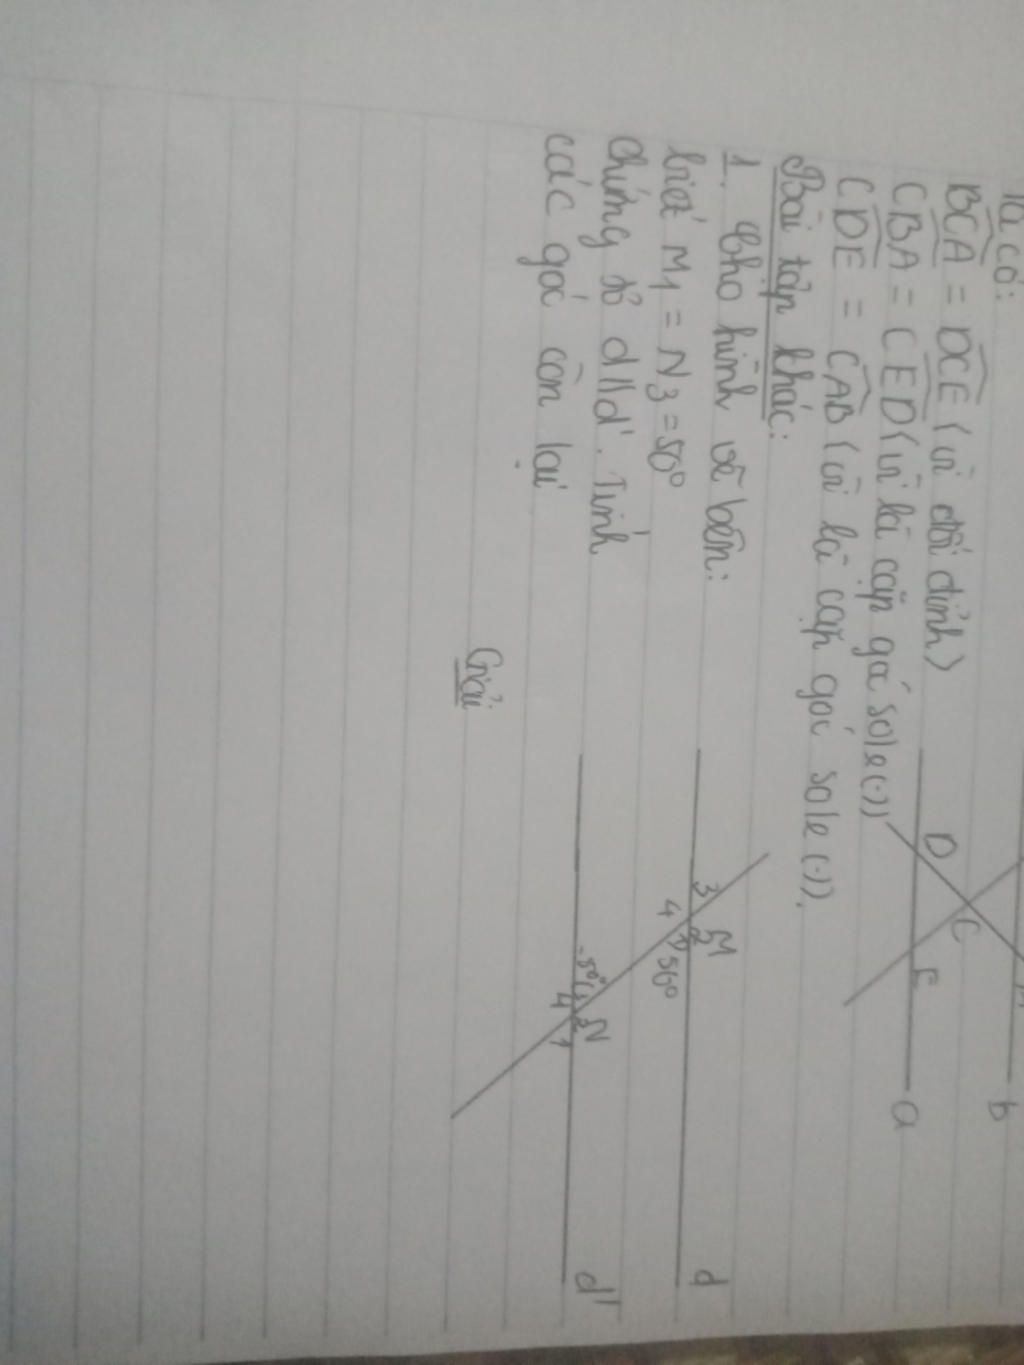 Ta có:
BCA = DCE (vì đối đỉnh)
CBA = CED (vì là cặp góc sole (.))
CDE = CAB (vì là cặp góc sole (.)).
Bài tập khác:
1. Cho hình vẽ bên:
biết M1 = N3 = 50°
chứng tỏ d//d'. Tính
các góc còn lại
Giải
D
C
E
b
a
3
M
4
1
2
50°
d
3
N
4
2
1
d'